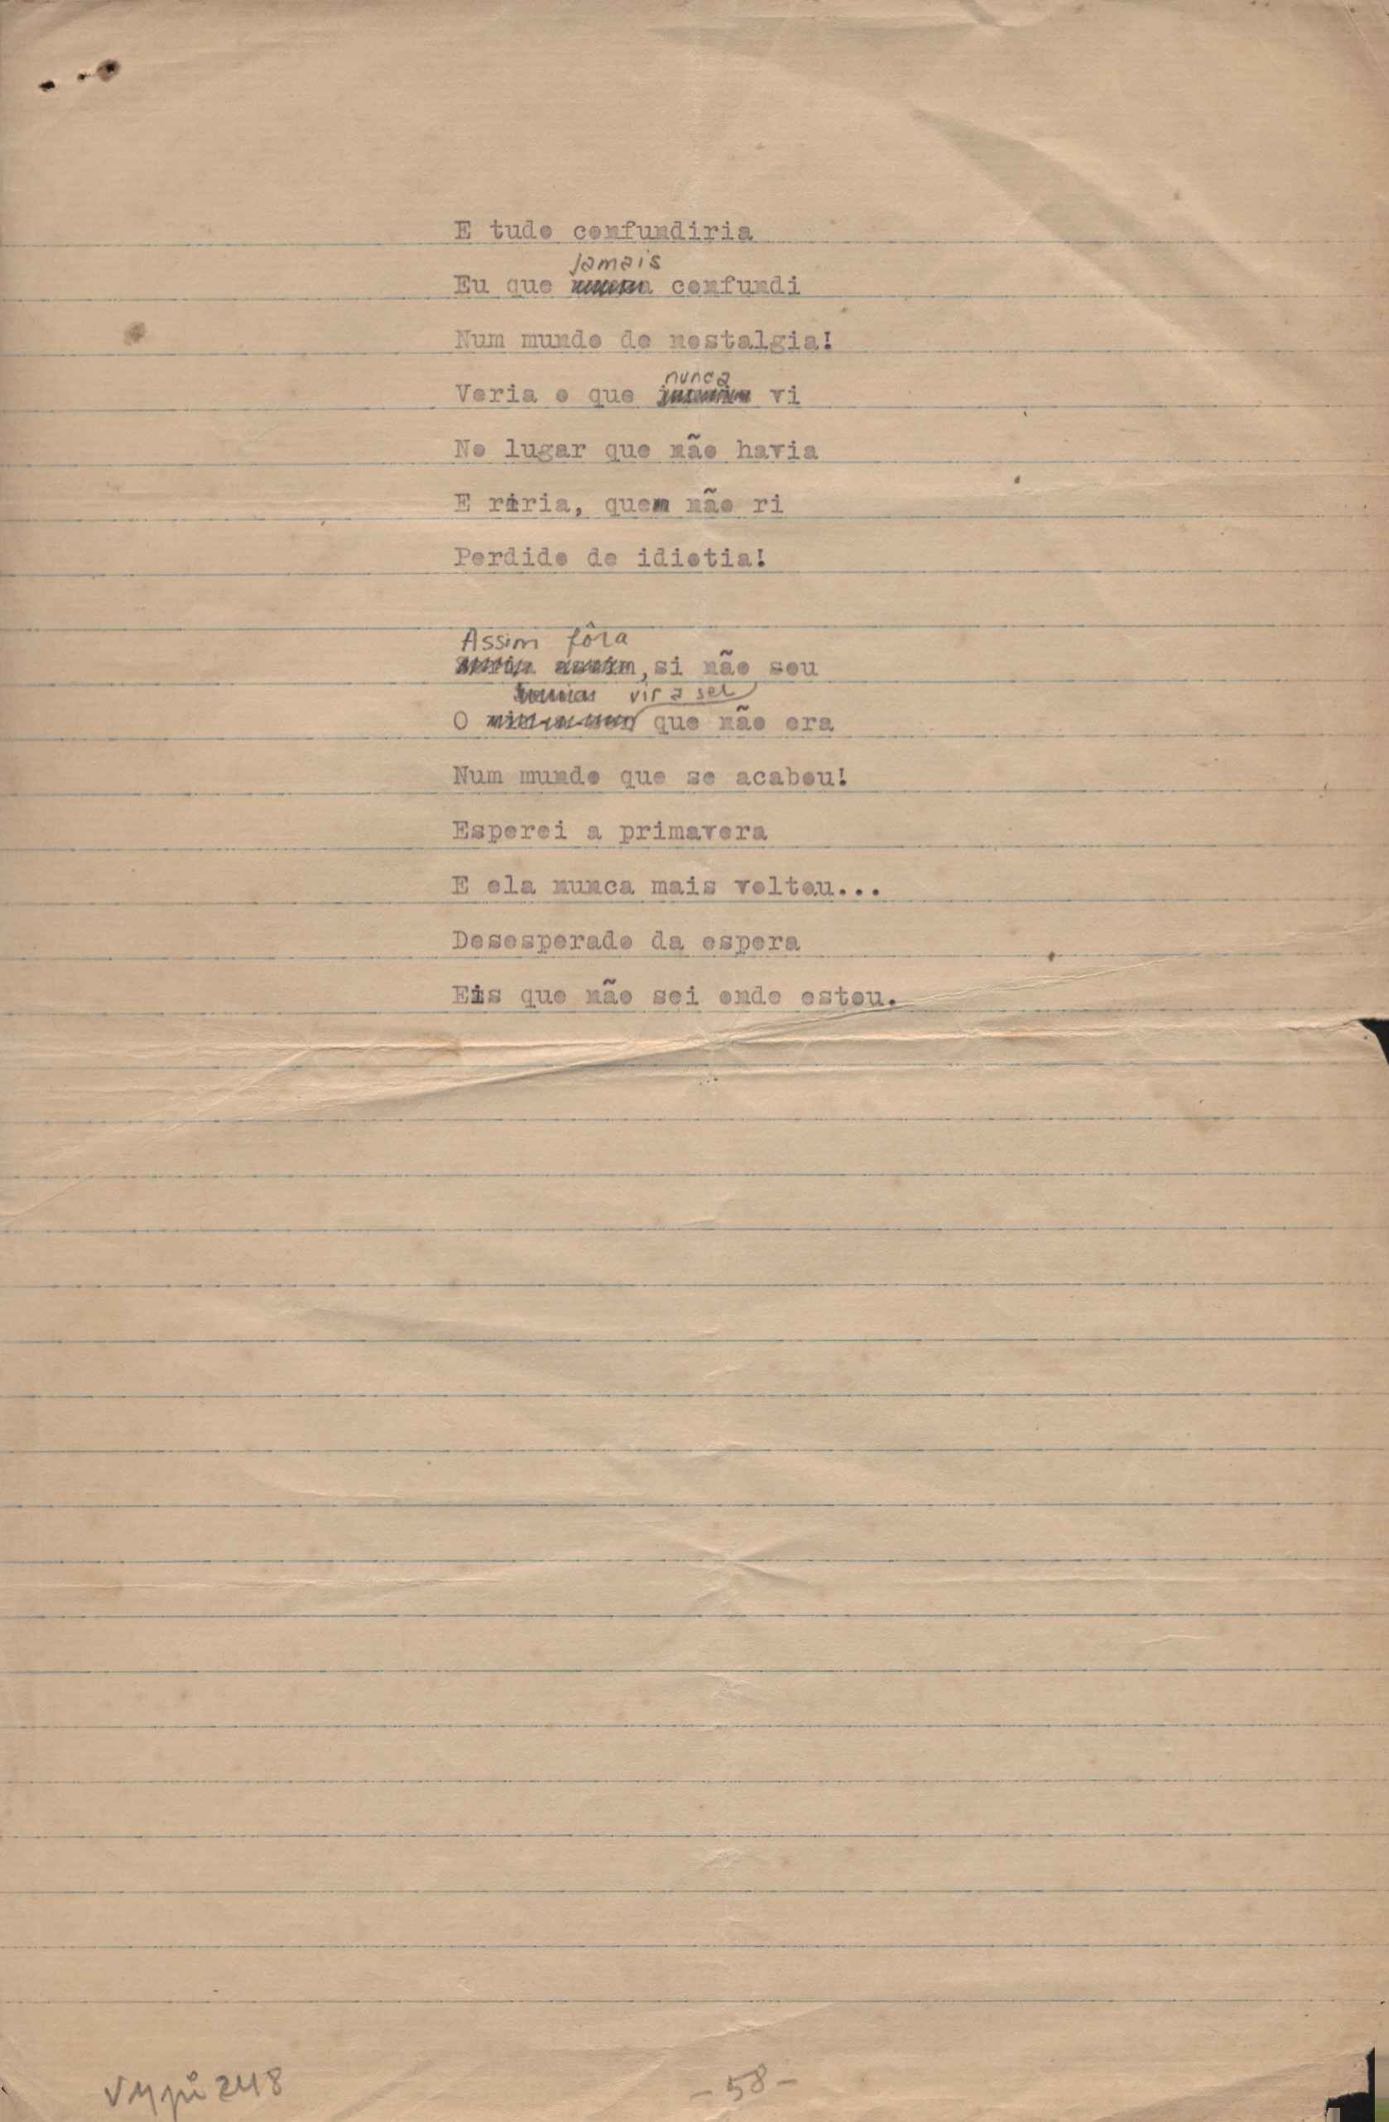 E tudo confundiria
jamais
Eu que confundi
Num mundo de nostalgia!
nunca
Veria o que vi
No lugar que não havia
E riria, quem não ri
Perdido de idiotia!
Assim fôra
, si não sou
vir a ser
O que não era
Num mundo que se acabou!
Esperei a primavera
E ela nunca mais voltou...
Desesperado da espera
Eis que não sei onde estou.
248
-58-